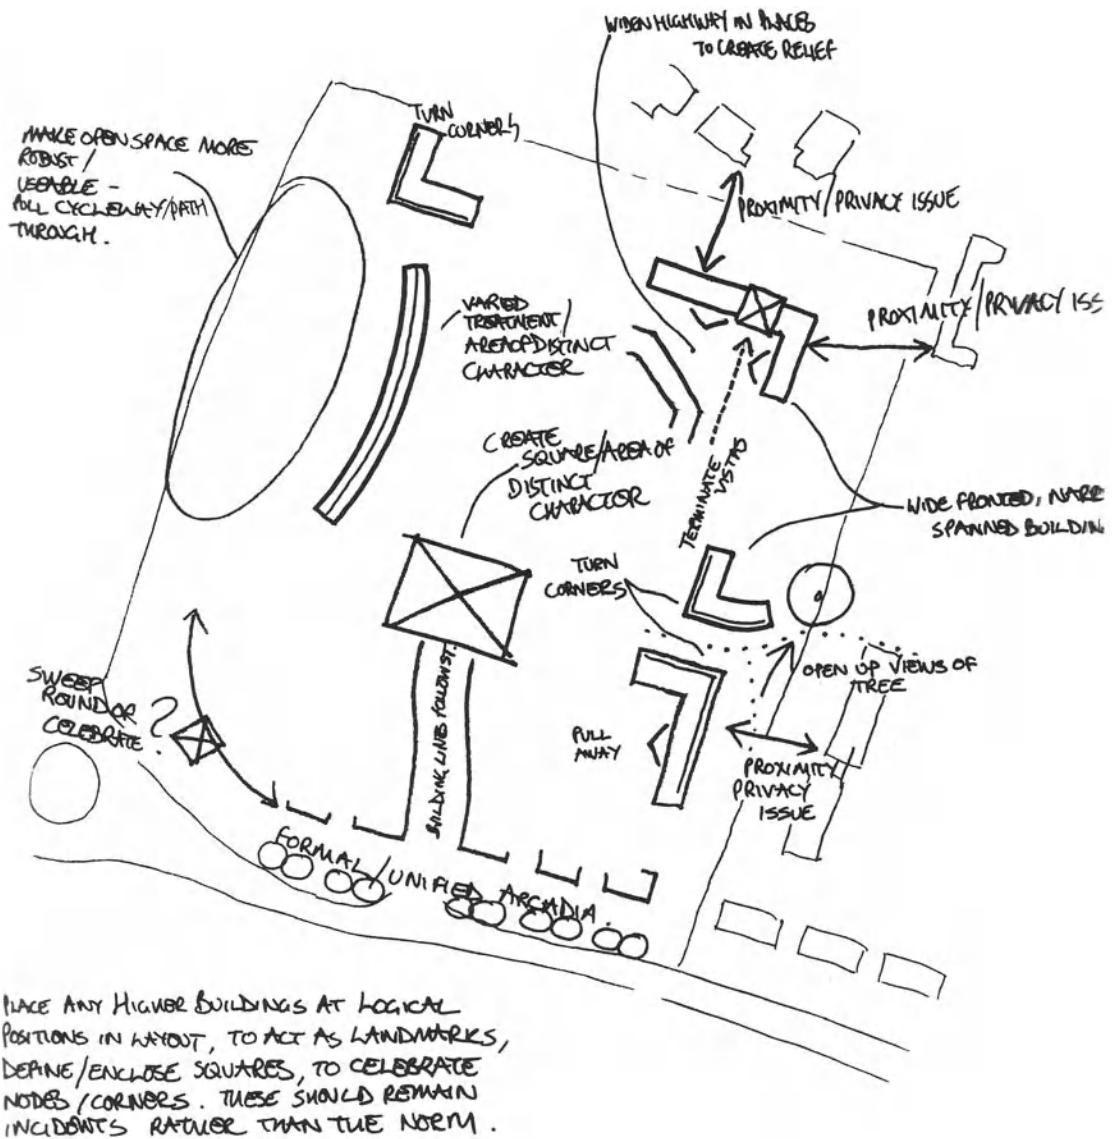 WIDEN HIGHWAY IN PLACES
TO CREATE RELIEF
TURN
CORNERS
MAKE OPEN SPACE MORE
ROBUST /
USEABLE -
PULL CYCLEWAY/PATH
THROUGH.
PROXIMITY/PRIVACY ISSUE
PROXIMITY/PRIVACY ISS
VARIED
TREATMENT/
AREA OF DISTINCT
CHARACTER
CREATE
SQUARE/AREA OF
DISTINCT
CHARACTOR
TERMINATE
VISTAS
WIDE FRONTED, NARR
SPANNED BUILDIN
TURN
CORNERS
OPEN UP VIEWS OF
TREE
SWEEP
ROUND OR
CELEBRATE?
BUILDING LINES FOLLOW ST.
PULL
AWAY
PROXIMITY
PRIVACY
ISSUE
FORMAL/UNIFIED ARCADIA.
PLACE ANY HIGHER BUILDINGS AT LOGICAL
POSITIONS IN LAYOUT, TO ACT AS LANDMARKS,
DEFINE/ENCLOSE SQUARES, TO CELEBRATE
NODES/CORNERS. THESE SHOULD REMAIN
INCIDENTS RATHER THAN THE NORM.